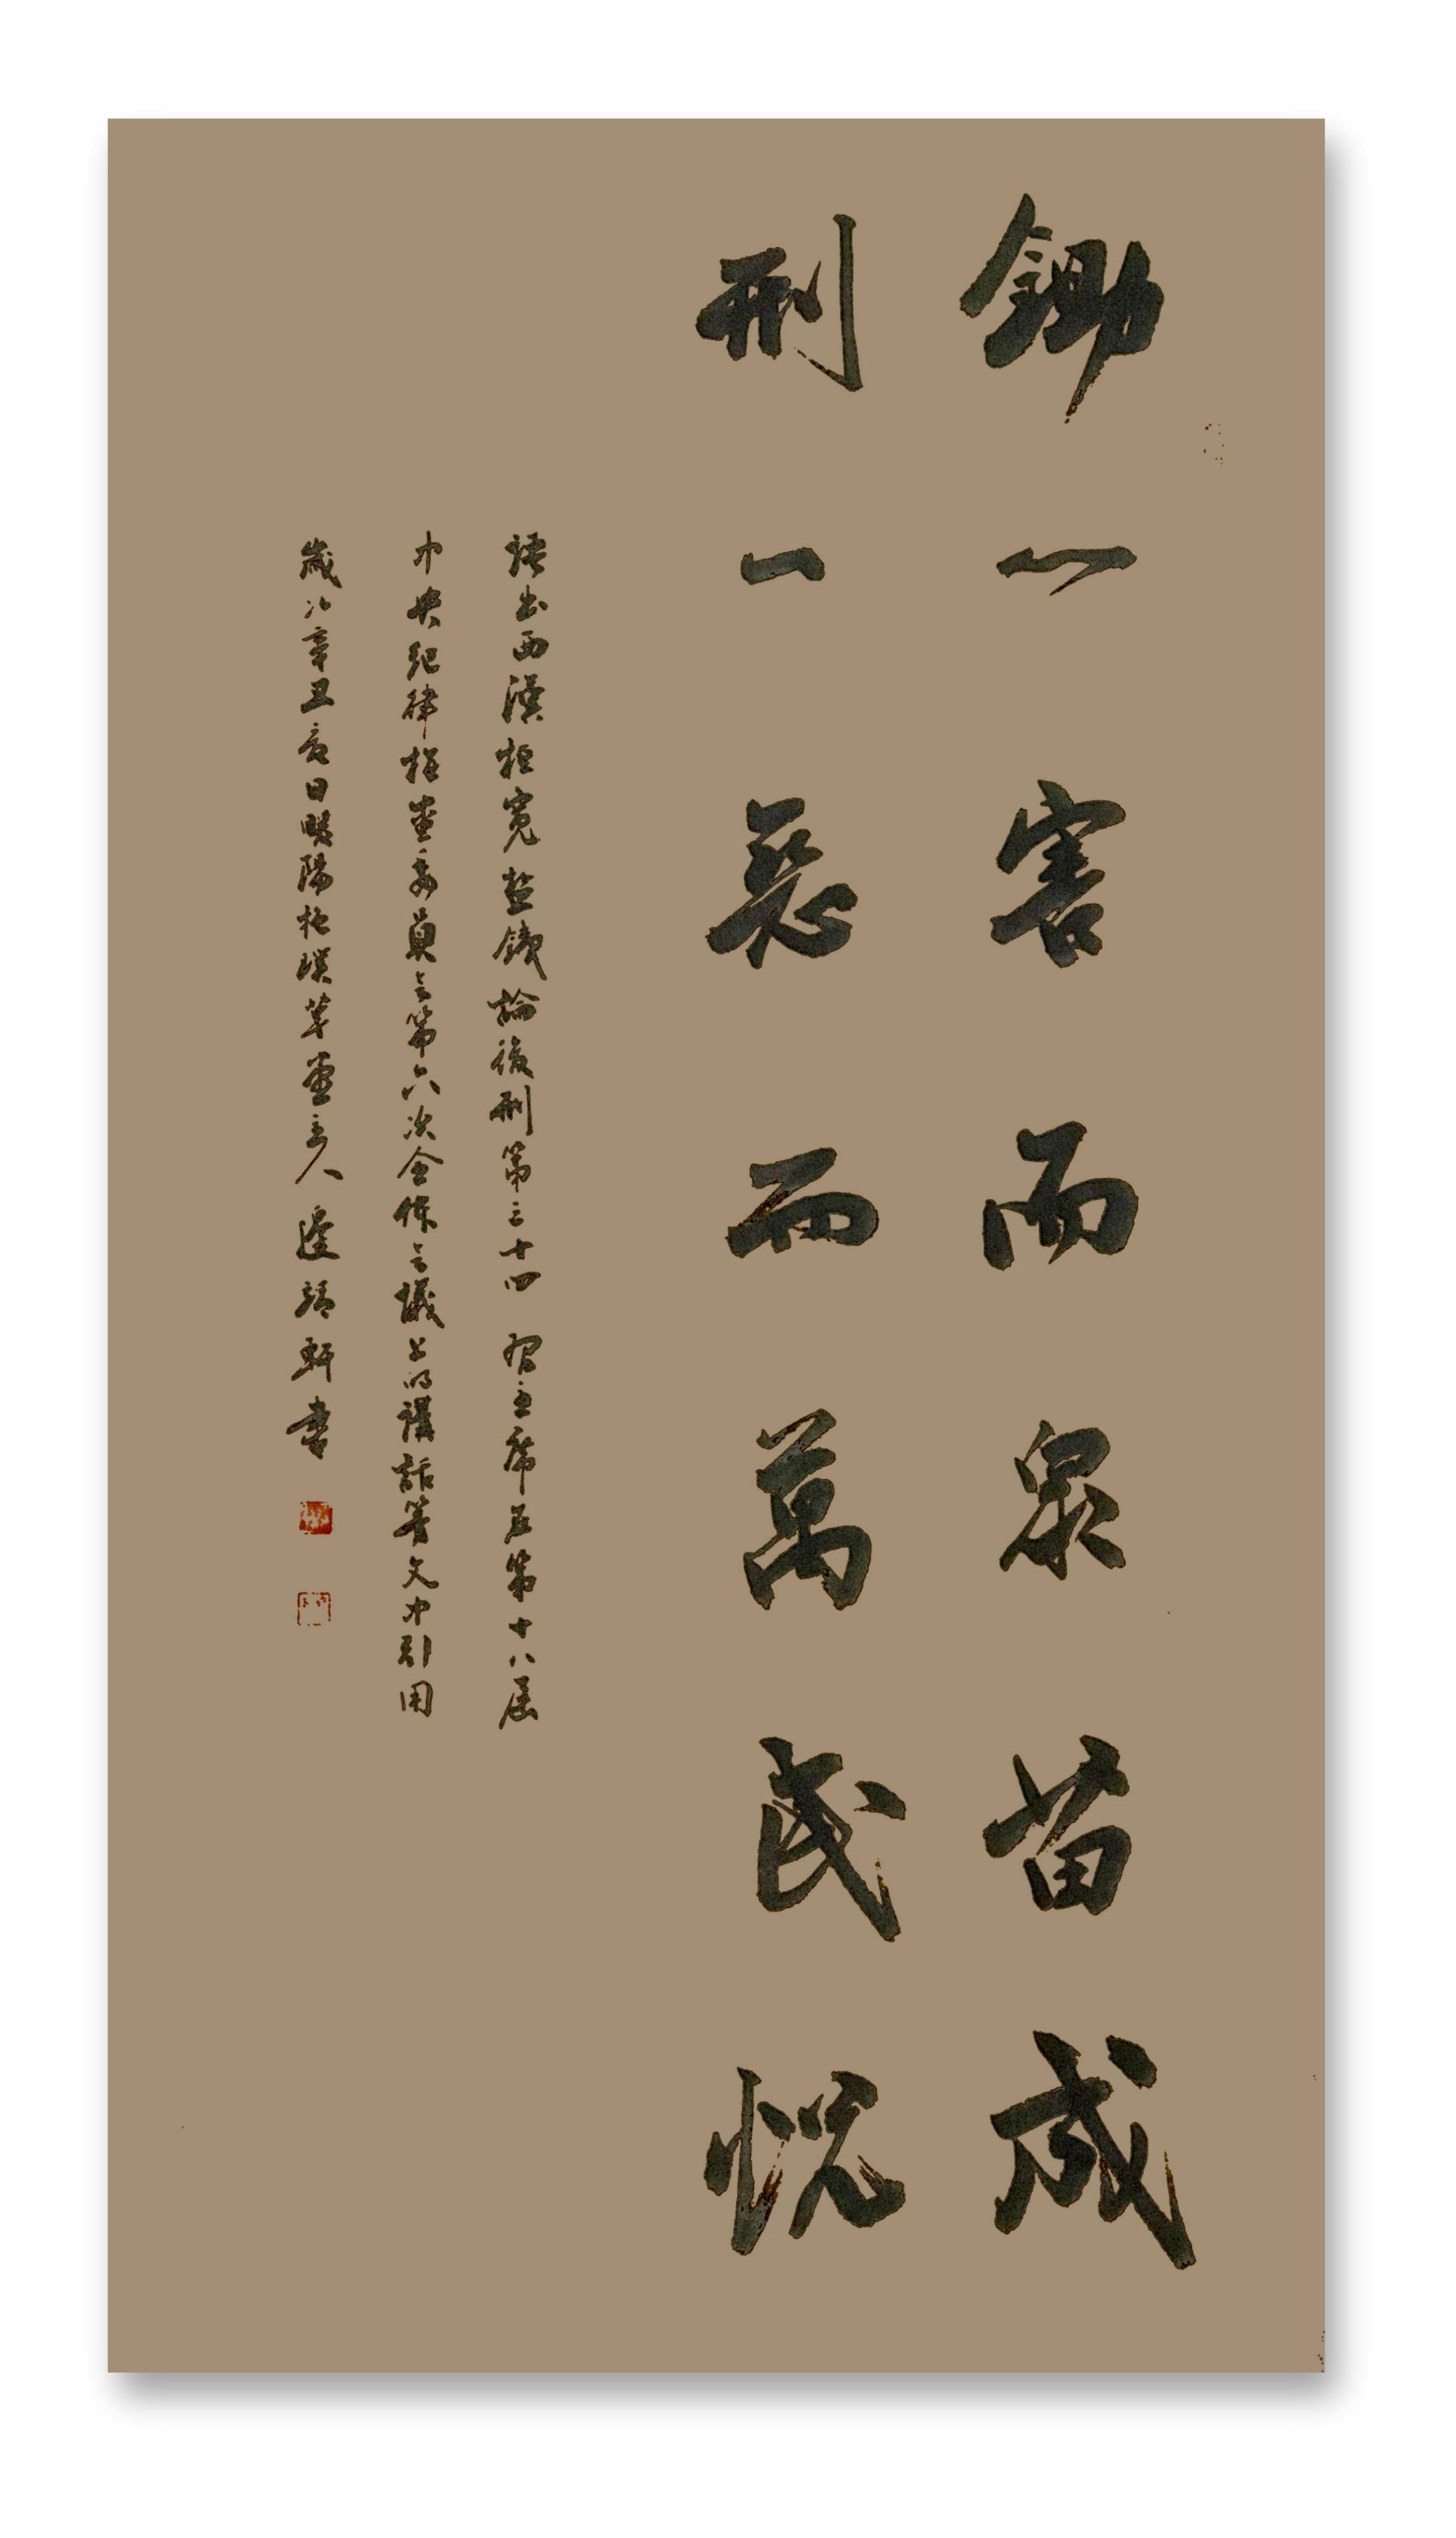 鋤一害而眾苗成
刑一惡而萬民悅
語出西漢桓寬鹽鐵論後刑第三十四 習主席在第十八屆
中央紀律檢查委員會第六次全體會議上的講話等文中引用
歲次辛丑夏日暖陽於璞草畫主人逄錦軒書